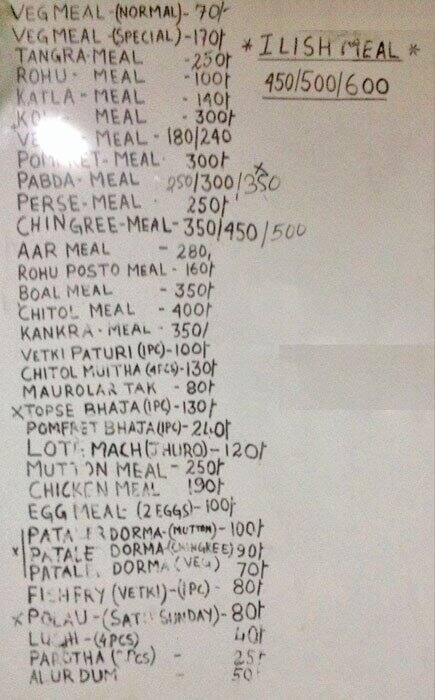 VEG MEAL-(NORMAL)- 70/-
VEG MEAL-(SPECIAL)-170/-
* ILISH MEAL *
450/500/600
TANGRA-MEAL -250/-
ROHU- MEAL -100/-
KATLA- MEAL - 140/-
MEAL - 300/-
MEAL- 180/240
MEAL- 300/-
PABDA- MEAL 250/300/350
PERSE-MEAL 250/-
CHINGREE-MEAL-350/450/500
AAR MEAL - 280/
ROHU POSTO MEAL- 160/-
BOAL MEAL - 350/-
CHITOL MEAL - 400/-
KANKRA-MEAL - 350/
VETKI PATURI (1PC)-100/-
CHITOL MUITHA (4PCS)-130/-
MAUROLAR TAK - 80/-
XTOPSE BHAJA(1PC)-130/-
POMFRET BHAJA(1PC)-240/-
MACH(JHURO)-120/-
MUTTON MEAL- 250/-
CHICKEN MEAL 190/-
EGG MEAL- (2 EGGS)- 100/-
DORMA-(MUTTON)-100/-
* PATALE DORMA-(CHINGREE)90/-
PATALE DORMA-(VEG) 70/-
FISHFRY (VETKI)-(1PC)- 80/-
X POLAU-(SAT SUNDAY)-80/-
-(4PCS) 40/-
PAROTHA - 25/-
ALUR DUM - 50/-